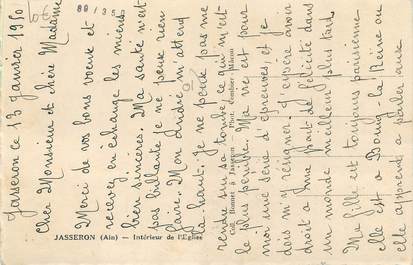 Jasseron ce 13 Janvier 1930
Cher Monsieur et chère Madame
Merci de vos bons voeux et
recevez en échange les miens
bien sincères. Ma santé n'est
pas brillante je ne peux rien
faire. Mon André m'attend
là-haut. Je ne peux pas me
rendre sur sa tombe ce qui m'est
le plus pénible. Ma vie est pour
moi une série d'épreuves, et je
dois m'y résigner. J'espère avoir
droit à une part de félicité dans
un monde meilleur plus tard.
Ma fille est toujours parisienne
elle est à Bourg-la-Reine ou
elle apprend à parler aux
JASSERON (Ain) — Intérieur de l'Eglise
Coll. Bonnet à Jasseron - Phot. Combier Mâcon